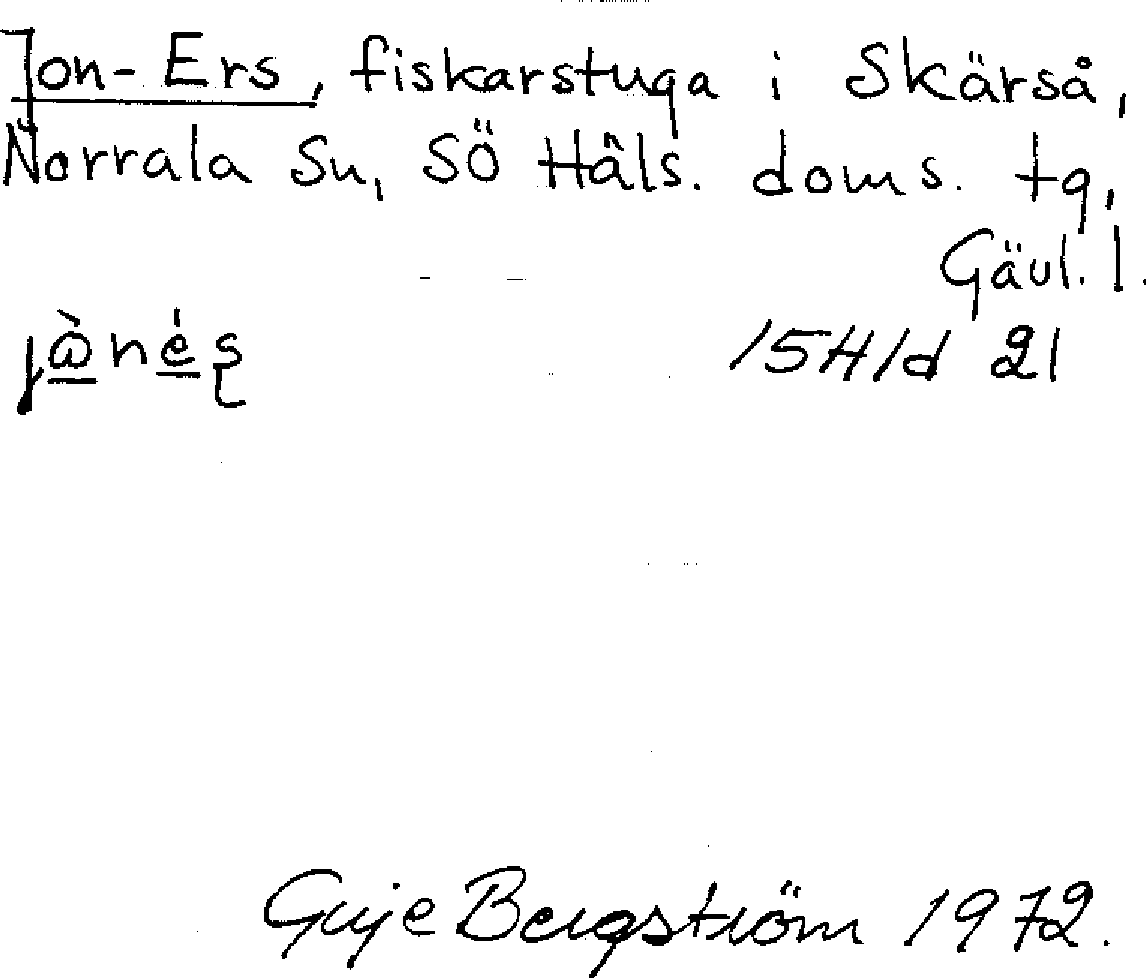 Jon-Ers, fiskarstuga i Skärså,
Norrala sn, Sö Häls. doms. tg,
Gävl. l.
jònés̨
15H1d 21
Guje Bergström 1972.